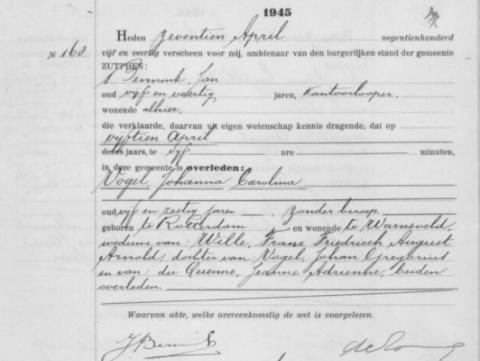 1945
Heden zeventien April negentienhonderd
№ 168. vijf en veertig verscheen voor mij, ambtenaar van den burgerlijken stand der gemeente
ZUTPHEN:
Jan
oud vijf en veertig jaren, Kantoorlooper,
wonende alhier,
die verklaarde, daarvan uit eigen wetenschap kennis dragende, dat op
vijftien April
dezes jaars, te vijf ure minuten,
in deze gemeente is overleden:
Vogel, Johanna Carolina
oud vijf en zestig jaren, zonder beroep,
geboren te Rotterdam en wonende te Warnsveld,
weduwe van: Wille, Franz Friedrich August
Arnold, dochter van Vogel, Johan Gregorius
en van: du Quenne, Jeanne Adrienne, beiden
overleden.
Waarvan akte, welke overeenkomstig de wet is voorgelezen.